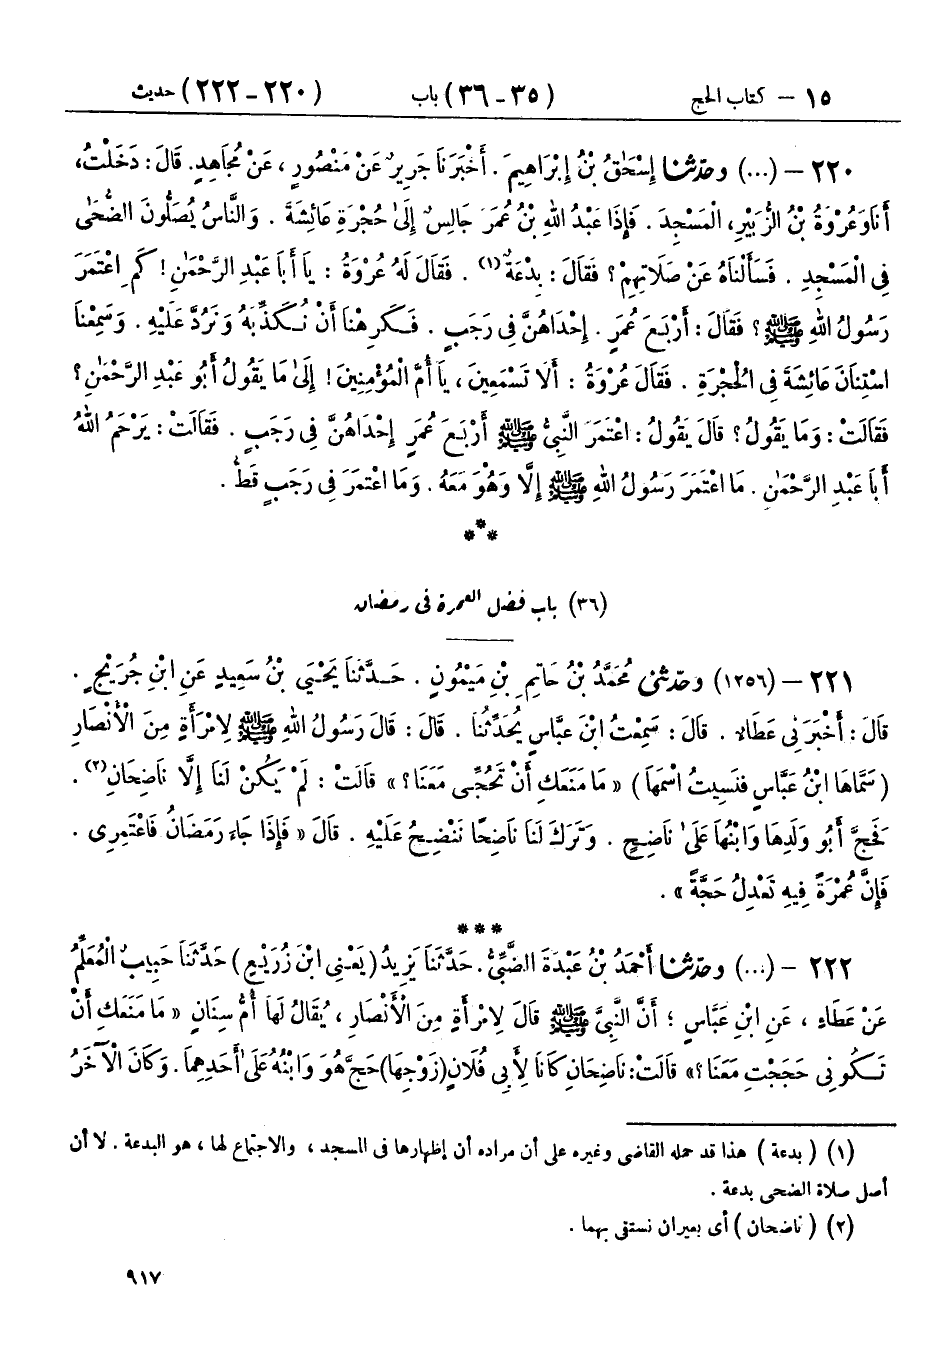 ١٥ – كتاب الحج (٣٥ – ٣٦) باب (٢٢٠ – ٢٢٢) حديث
٢٢٠ – (...) وحدّثنا إِسْحَٰقُ بْنُ إِبْرَاهِيمَ . أَخْبَرَنَا جَرِيرٌ عَنْ مَنْصُورٍ ، عَنْ مُجَاهِدٍ. قَالَ : دَخَلْتُ،
أَنَا وَعُرْوَةُ بْنُ الزُّبَيْرِ، الْمَسْجِدَ . فَإِذَا عَبْدُ اللهِ بْنُ عُمَرَ جَالِسٌ إِلَىٰ حُجْرَةِ عَائِشَةَ . وَالنَّاسُ يُصَلُّونَ الضُّحَىٰ
فِى الْمَسْجِدِ . فَسَأَلْنَاهُ عَنْ صَلَاتِهِمْ؟ فَقَالَ : بِدْعَةٌ(١) . فَقَالَ لَهُ عُرْوَةُ : يَا أَبَا عَبْدِ الرَّحْمَٰنِ! كَمِ اعْتَمَرَ
رَسُولُ اللهِ ﷺ ؟ فَقَالَ : أَرْبَعَ عُمَرٍ . إِحْدَاهُنَّ فِى رَجَبٍ . فَكَرِهْنَا أَنْ نُكَذِّبَهُ وَنَرُدَّ عَلَيْهِ . وَسَمِعْنَا
اسْتِنَانَ عَائِشَةَ فِى الْحُجْرَةِ . فَقَالَ عُرْوَةُ : أَلَا تَسْمَعِينَ ، يَا أُمَّ الْمُؤْمِنِينَ! إِلَىٰ مَا يَقُولُ أَبُو عَبْدِ الرَّحْمَٰنِ؟
فَقَالَتْ : وَمَا يَقُولُ؟ قَالَ يَقُولُ : اعْتَمَرَ النَّبِىُّ ﷺ أَرْبَعَ عُمَرٍ إِحْدَاهُنَّ فِى رَجَبٍ . فَقَالَتْ : يَرْحَمُ اللهُ
أَبَا عَبْدِ الرَّحْمَٰنِ . مَا اعْتَمَرَ رَسُولُ اللهِ ﷺ إِلَّا وَهُوَ مَعَهُ . وَمَا اعْتَمَرَ فِى رَجَبٍ قَطُّ .
***
(٣٦) باب فضل العمرة فى رمضان
٢٢١ – (١٢٥٦) وحدّثنى مُحَمَّدُ بْنُ حَاتِمِ بْنِ مَيْمُونٍ . حَدَّثَنَا يَحْيَى بْنُ سَعِيدٍ عَنِ ابْنِ جُرَيْجٍ .
قَالَ : أَخْبَرَنِى عَطَاءٌ . قَالَ : سَمِعْتُ ابْنَ عَبَّاسٍ يُحَدِّثُنَا . قَالَ : قَالَ رَسُولُ اللهِ ﷺ لِامْرَأَةٍ مِنَ الْأَنْصَارِ
( سَمَّاهَا ابْنُ عَبَّاسٍ فَنَسِيتُ اسْمَهَا ) « مَا مَنَعَكِ أَنْ تَحُجِّى مَعَنَا؟ » قَالَتْ : لَمْ يَكُنْ لَنَا إِلَّا نَاضِحَانِ(٢) .
فَحَجَّ أَبُو وَلَدِهَا وَابْنُهَا عَلَىٰ نَاضِحٍ . وَتَرَكَ لَنَا نَاضِحًا نَنْضِحُ عَلَيْهِ . قَالَ « فَإِذَا جَاءَ رَمَضَانُ فَاعْتَمِرِى .
فَإِنَّ عُمْرَةً فِيهِ تَعْدِلُ حَجَّةً » .
***
٢٢٢ – (...) وحدّثنا أَحْمَدُ بْنُ عَبْدَةَ الضَّبِّىُّ . حَدَّثَنَا يَزِيدُ (يَعْنِى ابْنَ زُرَيْعٍ ) حَدَّثَنَا حَبِيبٌ الْمُعَلِّمُ
عَنْ عَطَاءٍ ، عَنِ ابْنِ عَبَّاسٍ ؛ أَنَّ النَّبِىَّ ﷺ قَالَ لِامْرَأَةٍ مِنَ الْأَنْصَارِ ، يُقَالُ لَهَا أُمُّ سِنَانٍ « مَا مَنَعَكِ أَنْ
تَكُونِى حَجَجْتِ مَعَنَا؟ » قَالَتْ: نَاضِحَانِ كَانَا لِأَبِى فُلَانٍ (زَوْجِهَا) حَجَّ هُوَ وَابْنُهُ عَلَىٰ أَحَدِهِمَا . وَكَانَ الْآخَرُ
(١) ( بدعة ) هذا قد حمله القاضى وغيره على أن مراده أن إظهارها فى المسجد ، والاجتماع لها ، هو البدعة . لا أن
أصل صلاة الضحى بدعة .
(٢) ( ناضحان ) أى بعيران نستقى بهما .
٩١٧